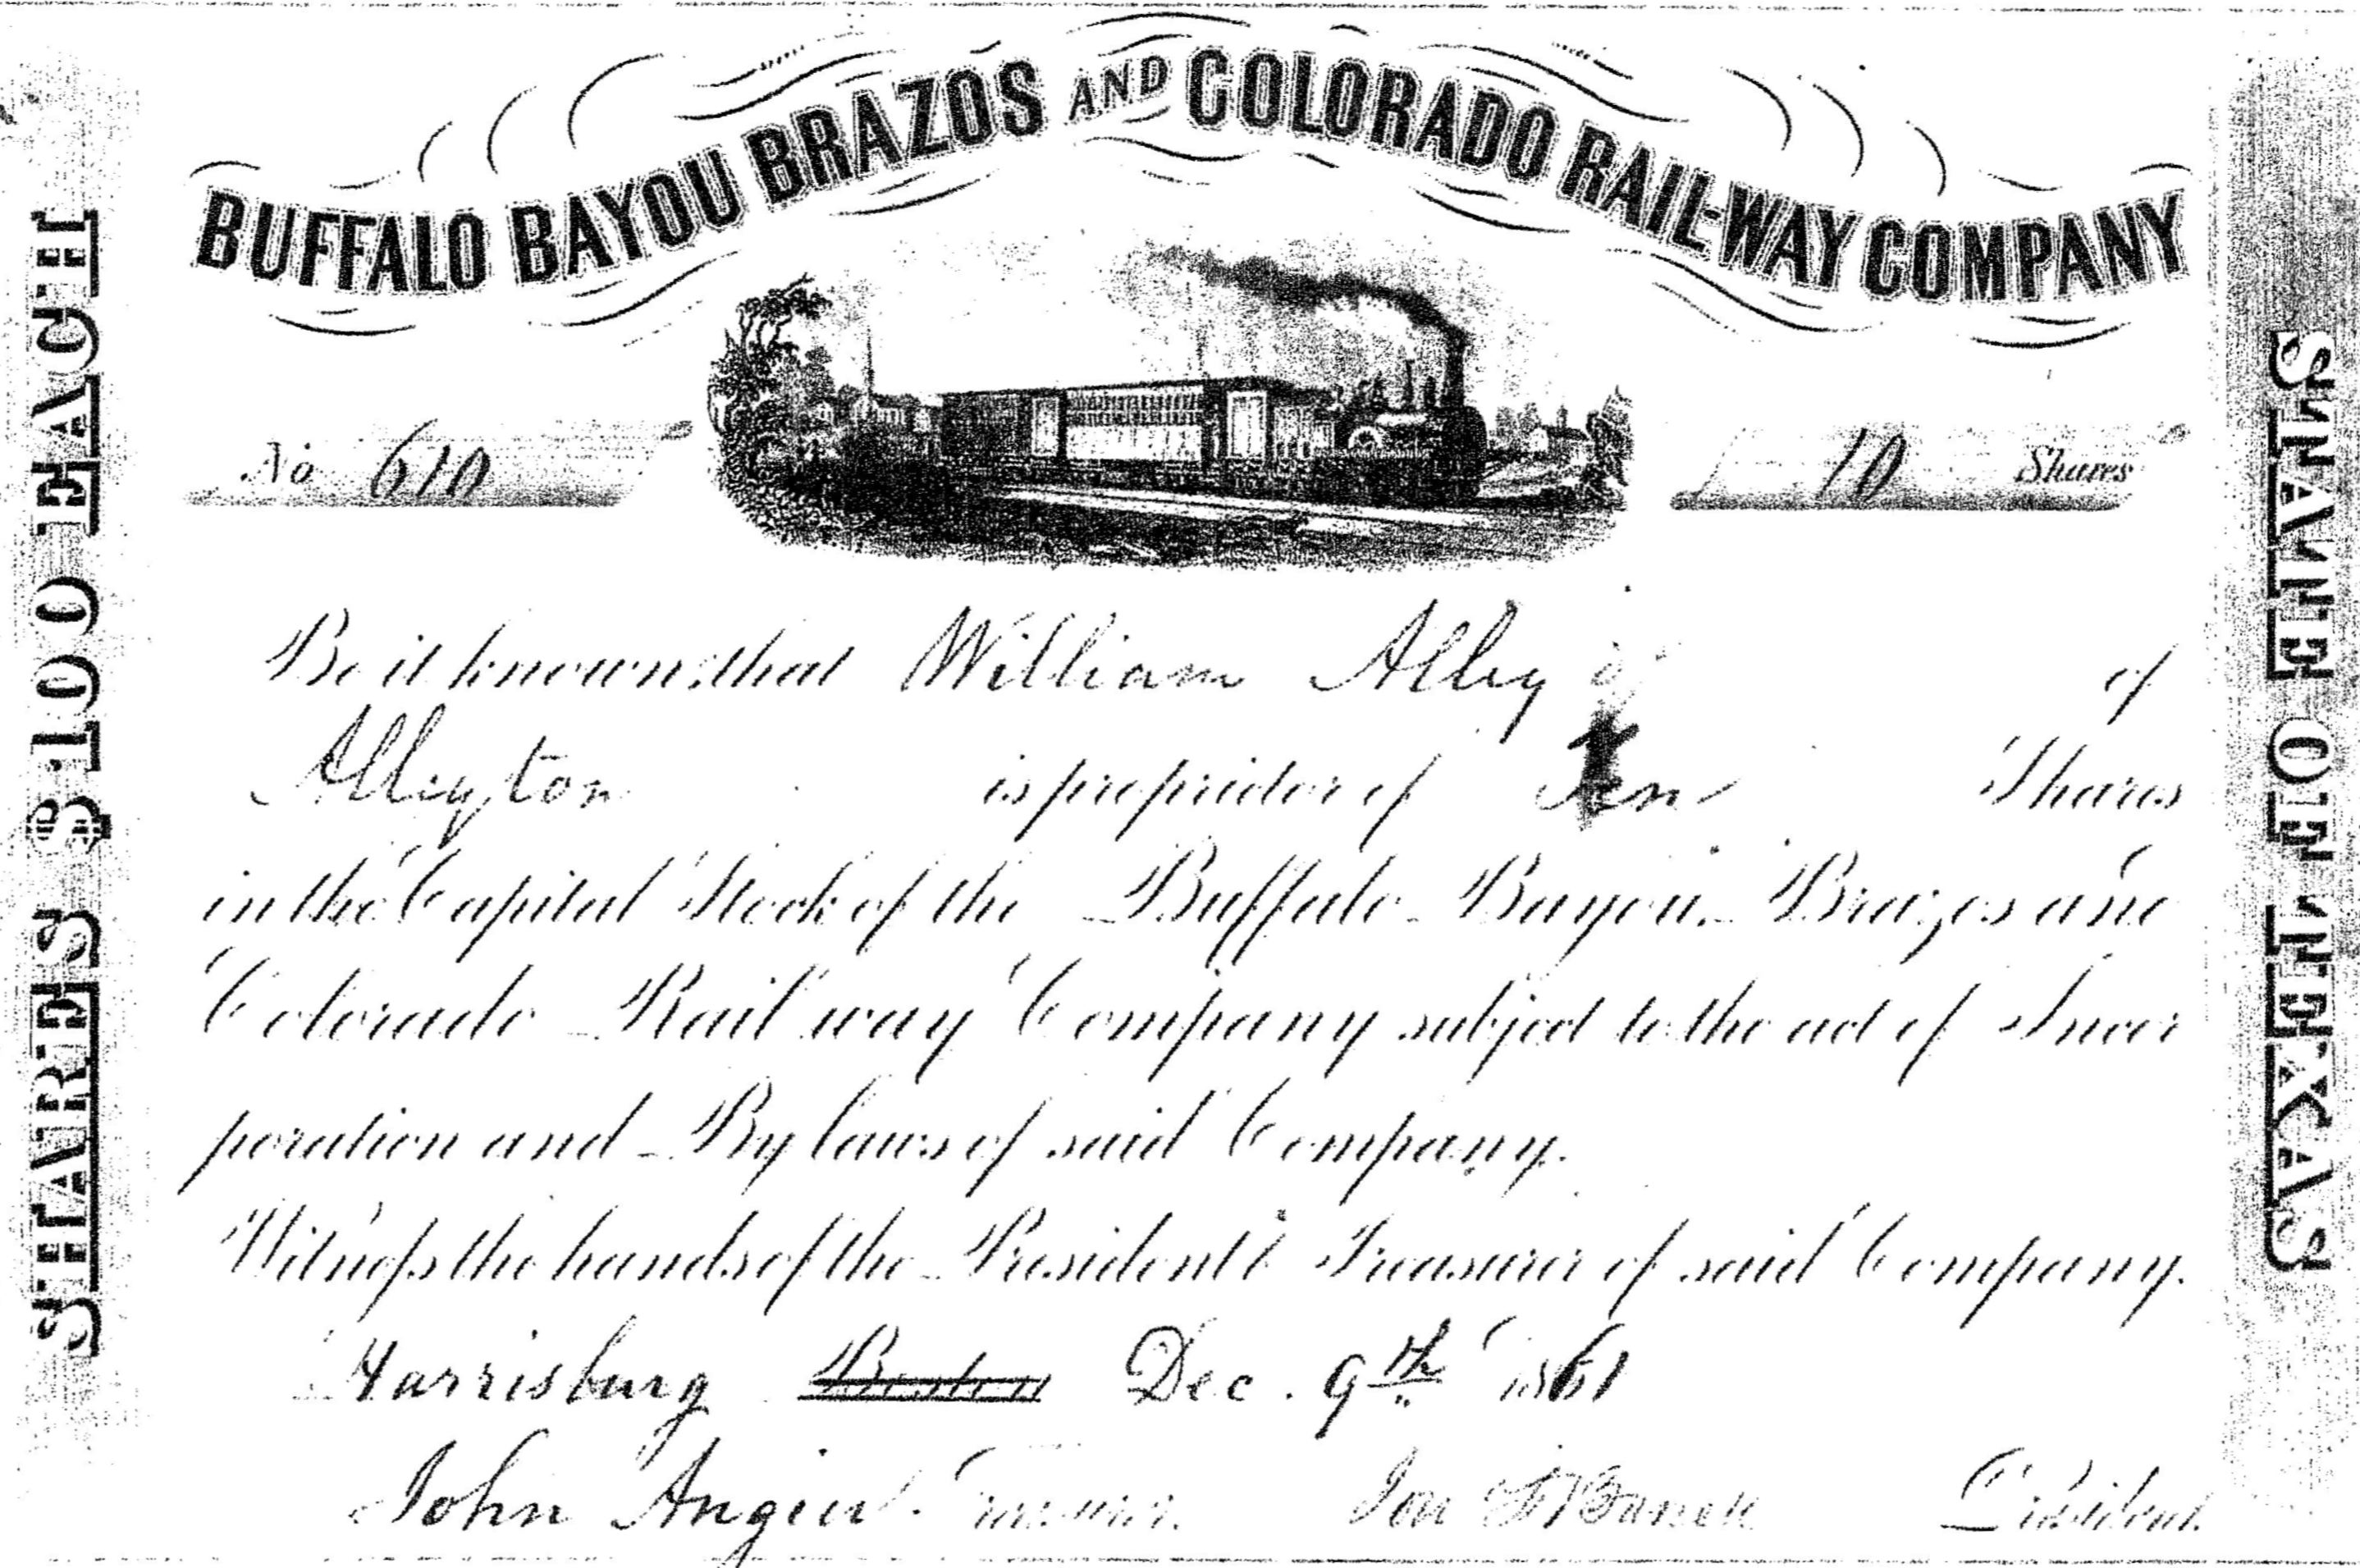 BUFFALO BAYOU BRAZOS AND COLORADO RAIL-WAY COMPANY
SHARES $100 EACH
STATE OF TEXAS
No 610
10 Shares
Be it known, that William Alley of
Alleyton is proprietor of Ten Shares
in the Capital Stock of the Buffalo Bayou, Brazos and
Colorado Rail way Company subject to the act of Incor
poration and By laws of said Company.
Witness the hands of the President & Treasurer of said Company.
Harrisburg Boston Dec. 9th 1861
John Angier Treasurer. President.